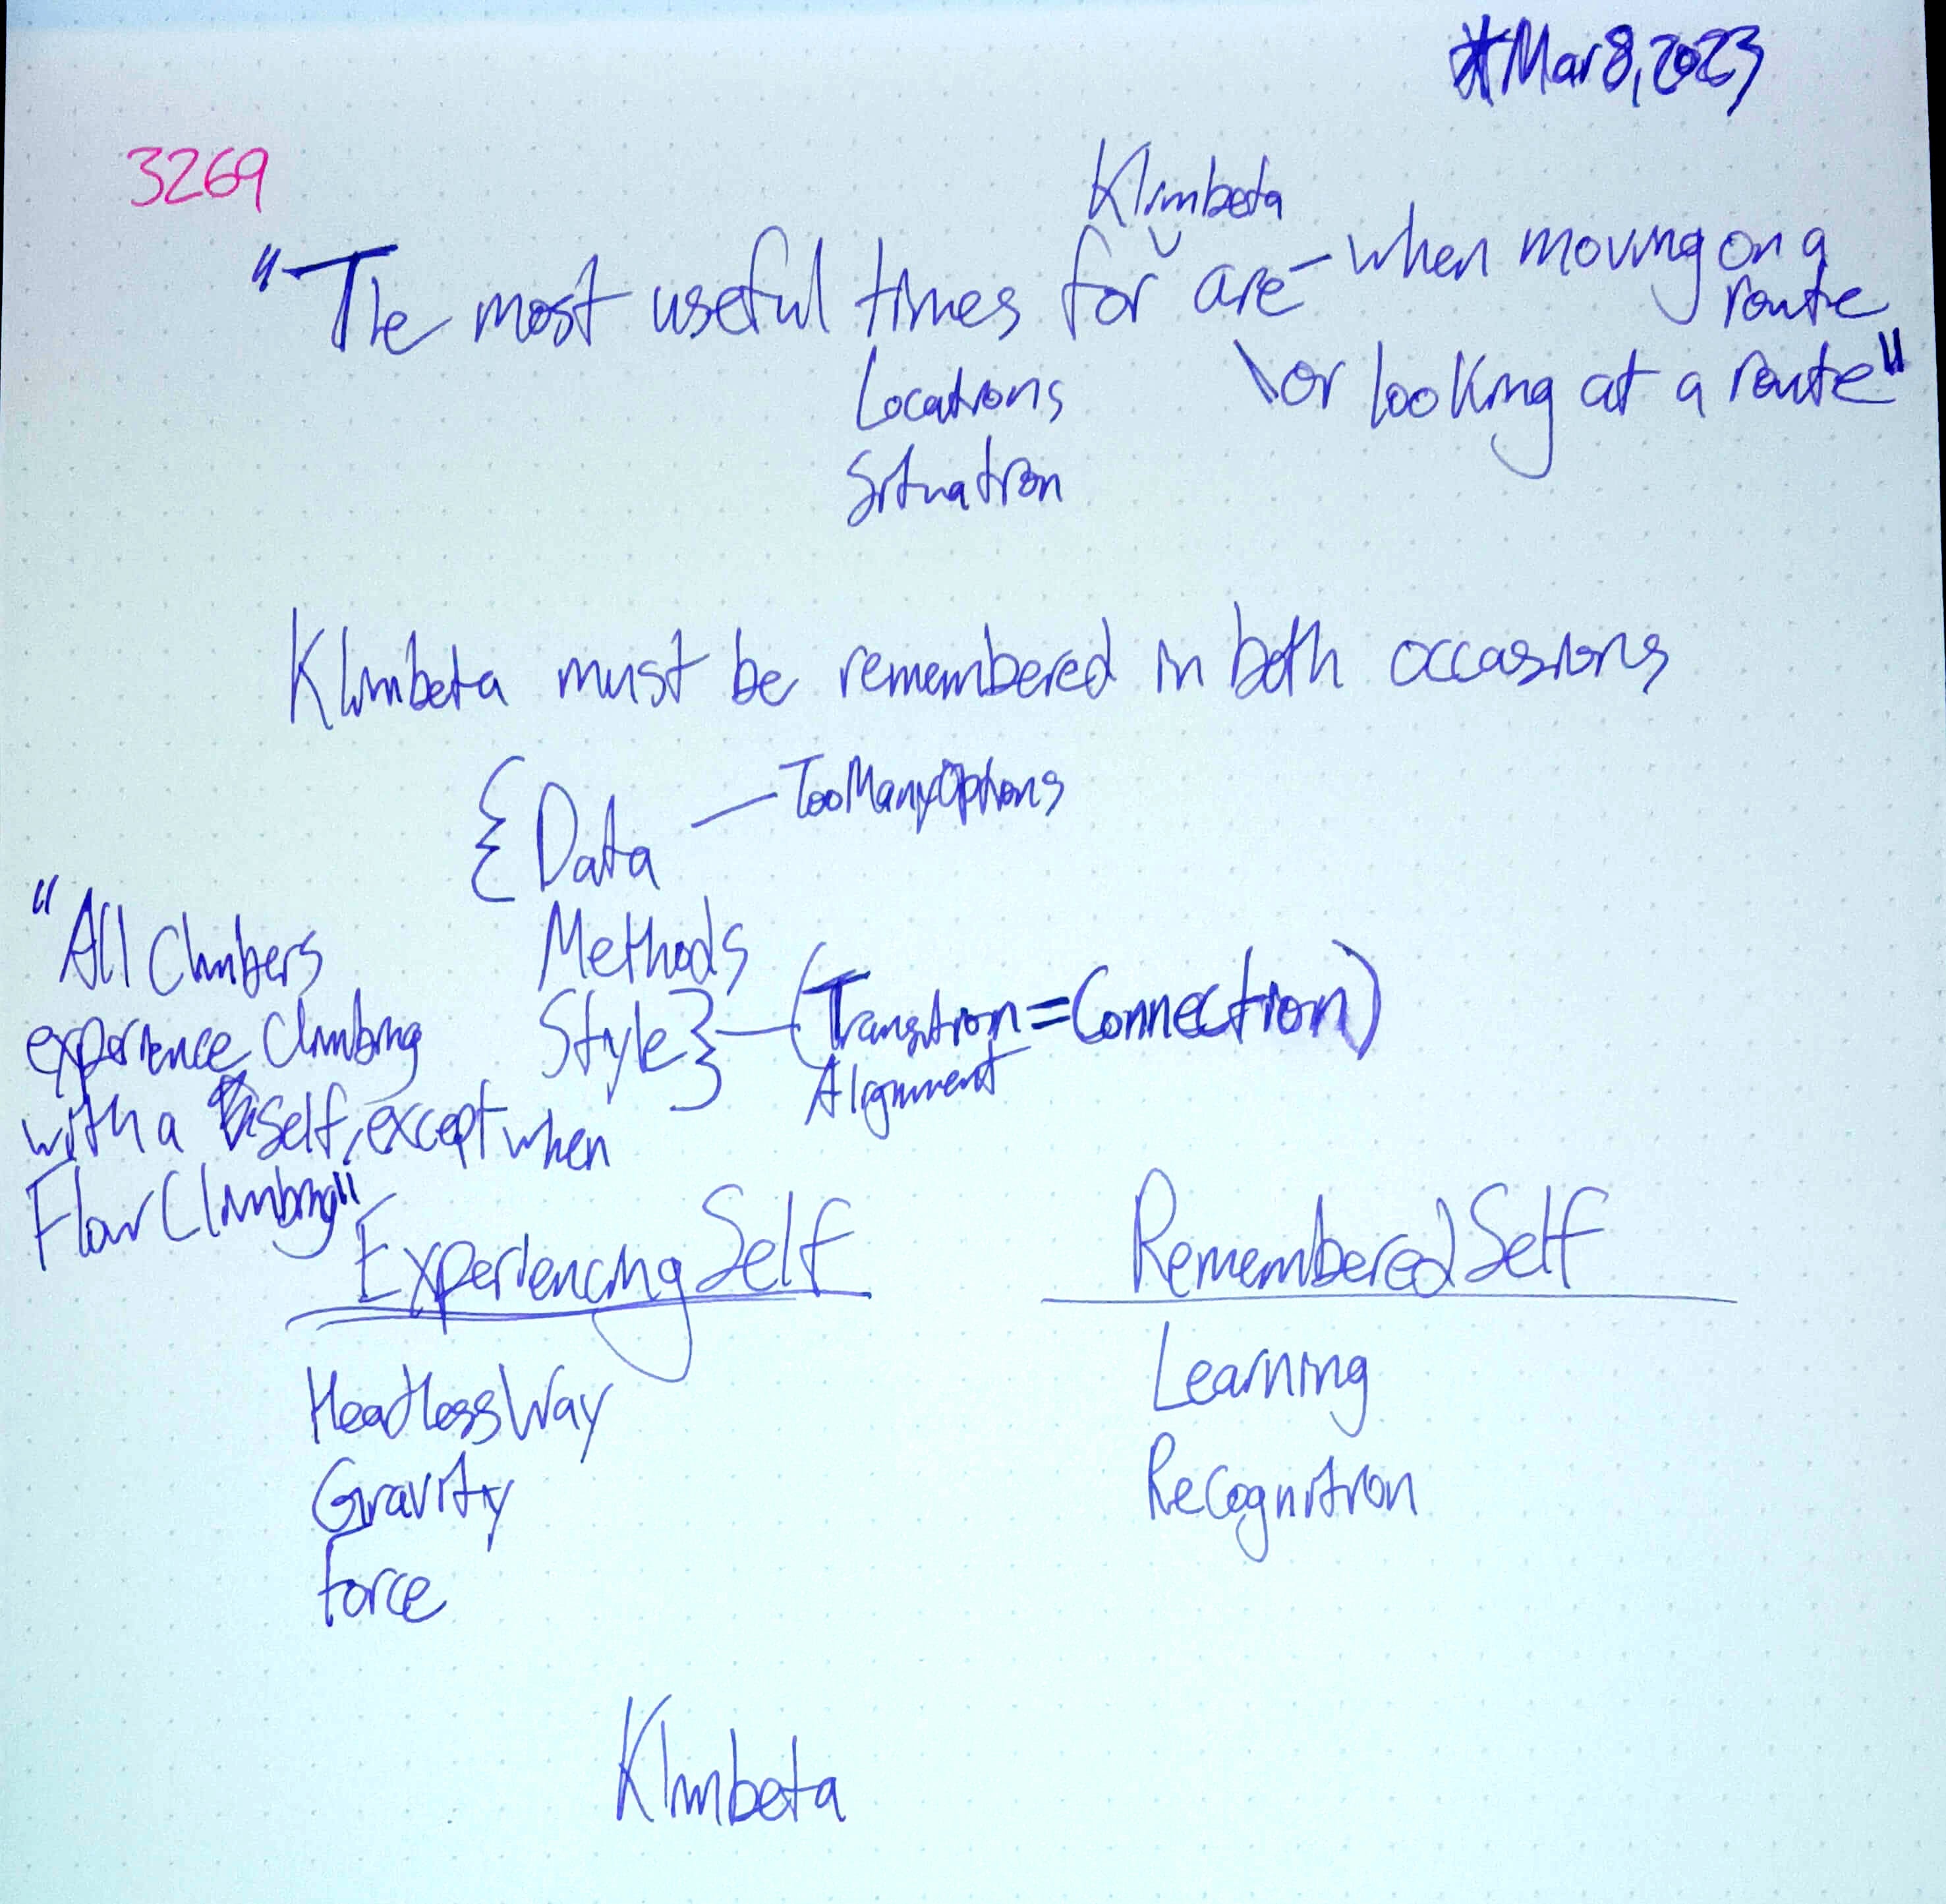 *Mar 8, 2023
3269
Klimbeta
"The most useful times for ˇ are – when moving on a
route
Locations
\or looking at a route"
Situation
Klimbeta must be remembered in both occasions
{Data — TooManyOptions
Methods
Style} — (Transition = Connection)
Alignment
"All Climbers
experience Climbing
with a self, except when
FlowClimbing"
ExperiencingSelf
HeadlessWay
Gravity
Force
RememberedSelf
Learning
Recognition
Klimbeta